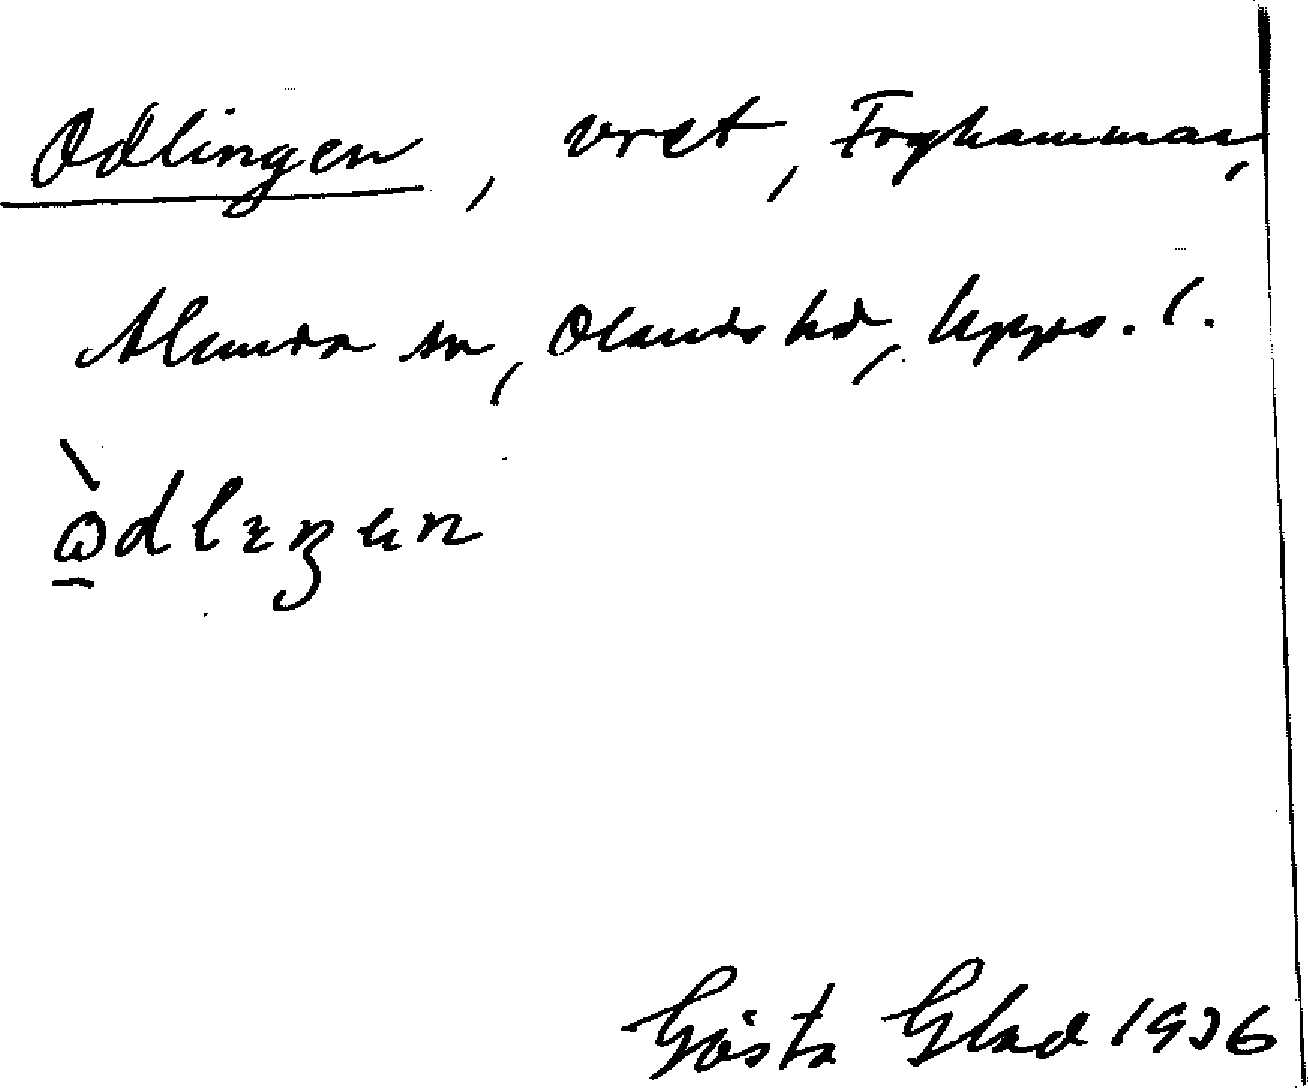 Odlingen, vret, Foghammar,
Alunda sn, Olands hd, Upps. l.
Gösta Glad 1936